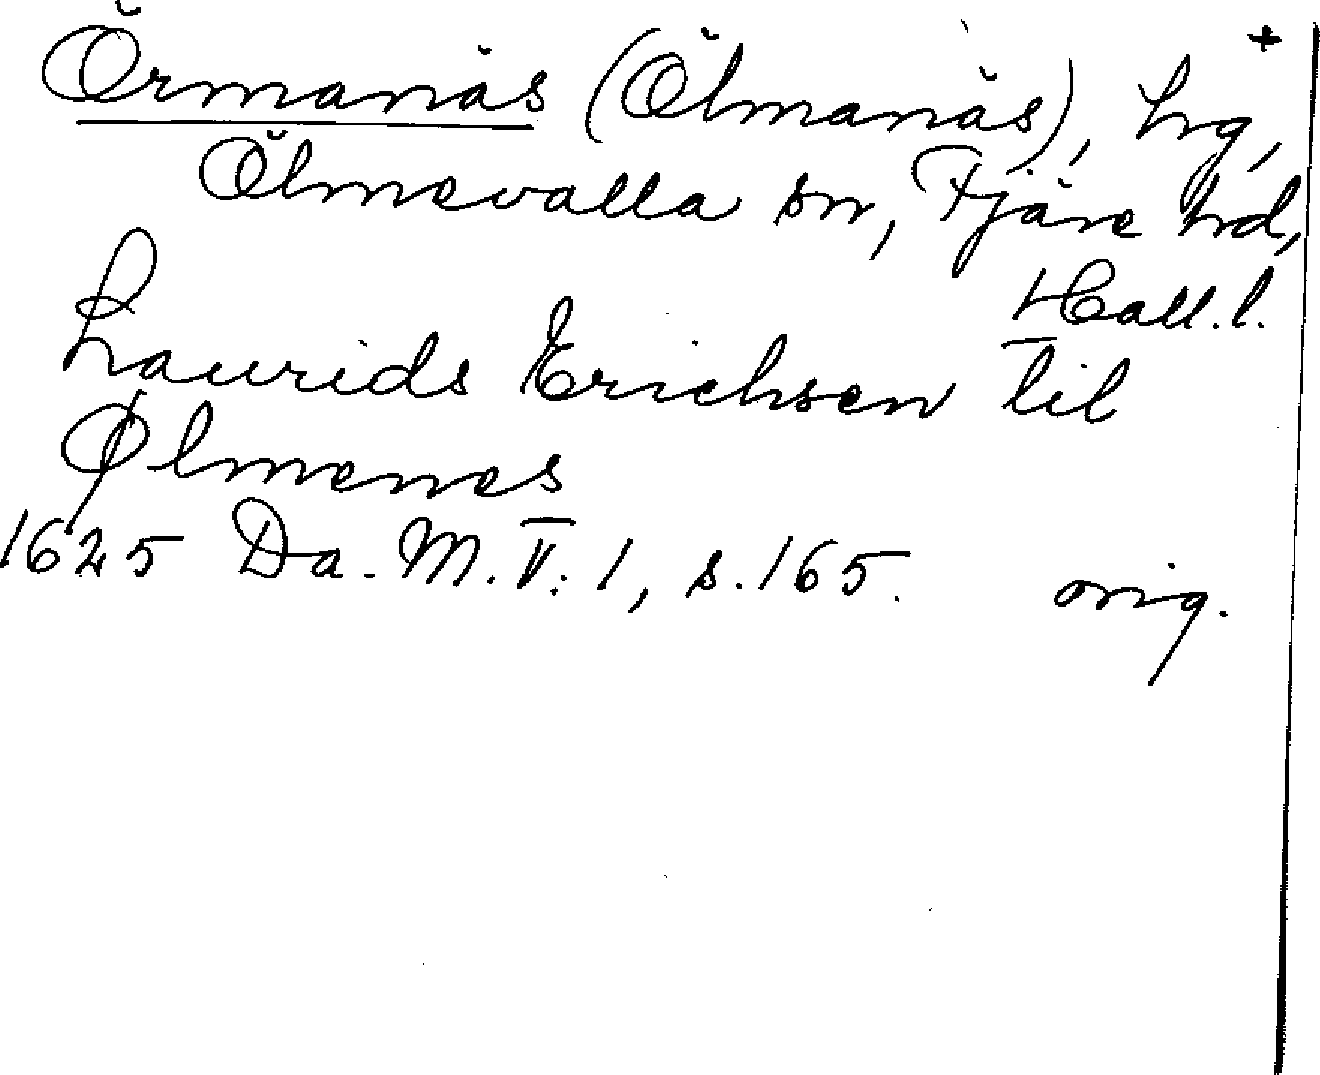 Örmanäs (Ölmanäs), hg, +
Ölmevalla sn, Fjäre hd,
Hall. l.
Laurids Erichsen til
Ølmenes
1625 Da. M. V: 1, s. 165. orig.